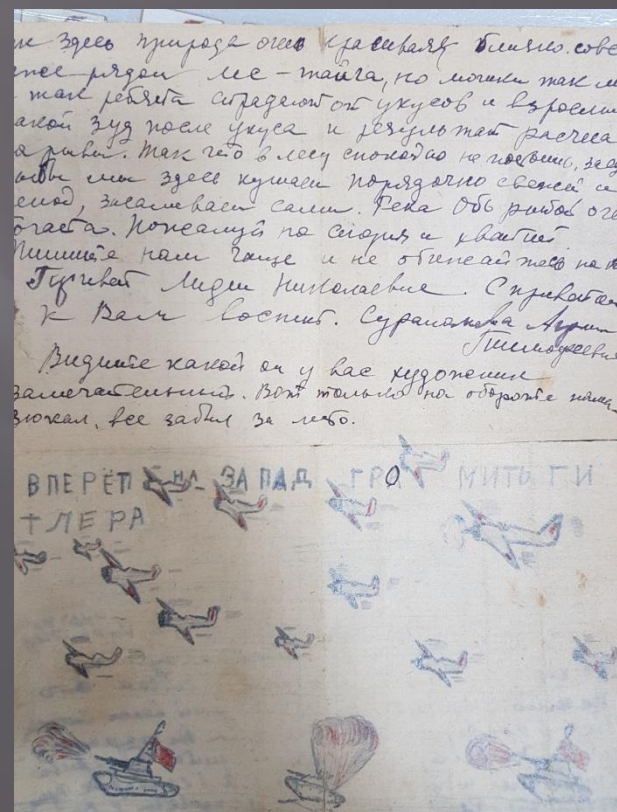 здесь природа очень красивая, близко совс
рядом лес - тайга, но мошки так м
так ребята страдают от укусов и взрослы
акой зуд после укуса и результат расчеса
Так что в лесу спокойно не
мы здесь кушаем порядочно свежей и
засаливаем сами. Река Обь рыбой оче
богата. Пожалуй на сегодня и хватит.
Пишите нам чаще и не обижайтесь на н
Привет Лидии Николаевне. С приветом
к Вам воспит.
Тимофеевна
Видите какой он у вас художник
замечательный. Вот только на обороте нама-
зюкал, все забыл за лето.
ВПЕРЁТ НА ЗАПАД ГРОМИТЬ ГИ
ТЛЕРА